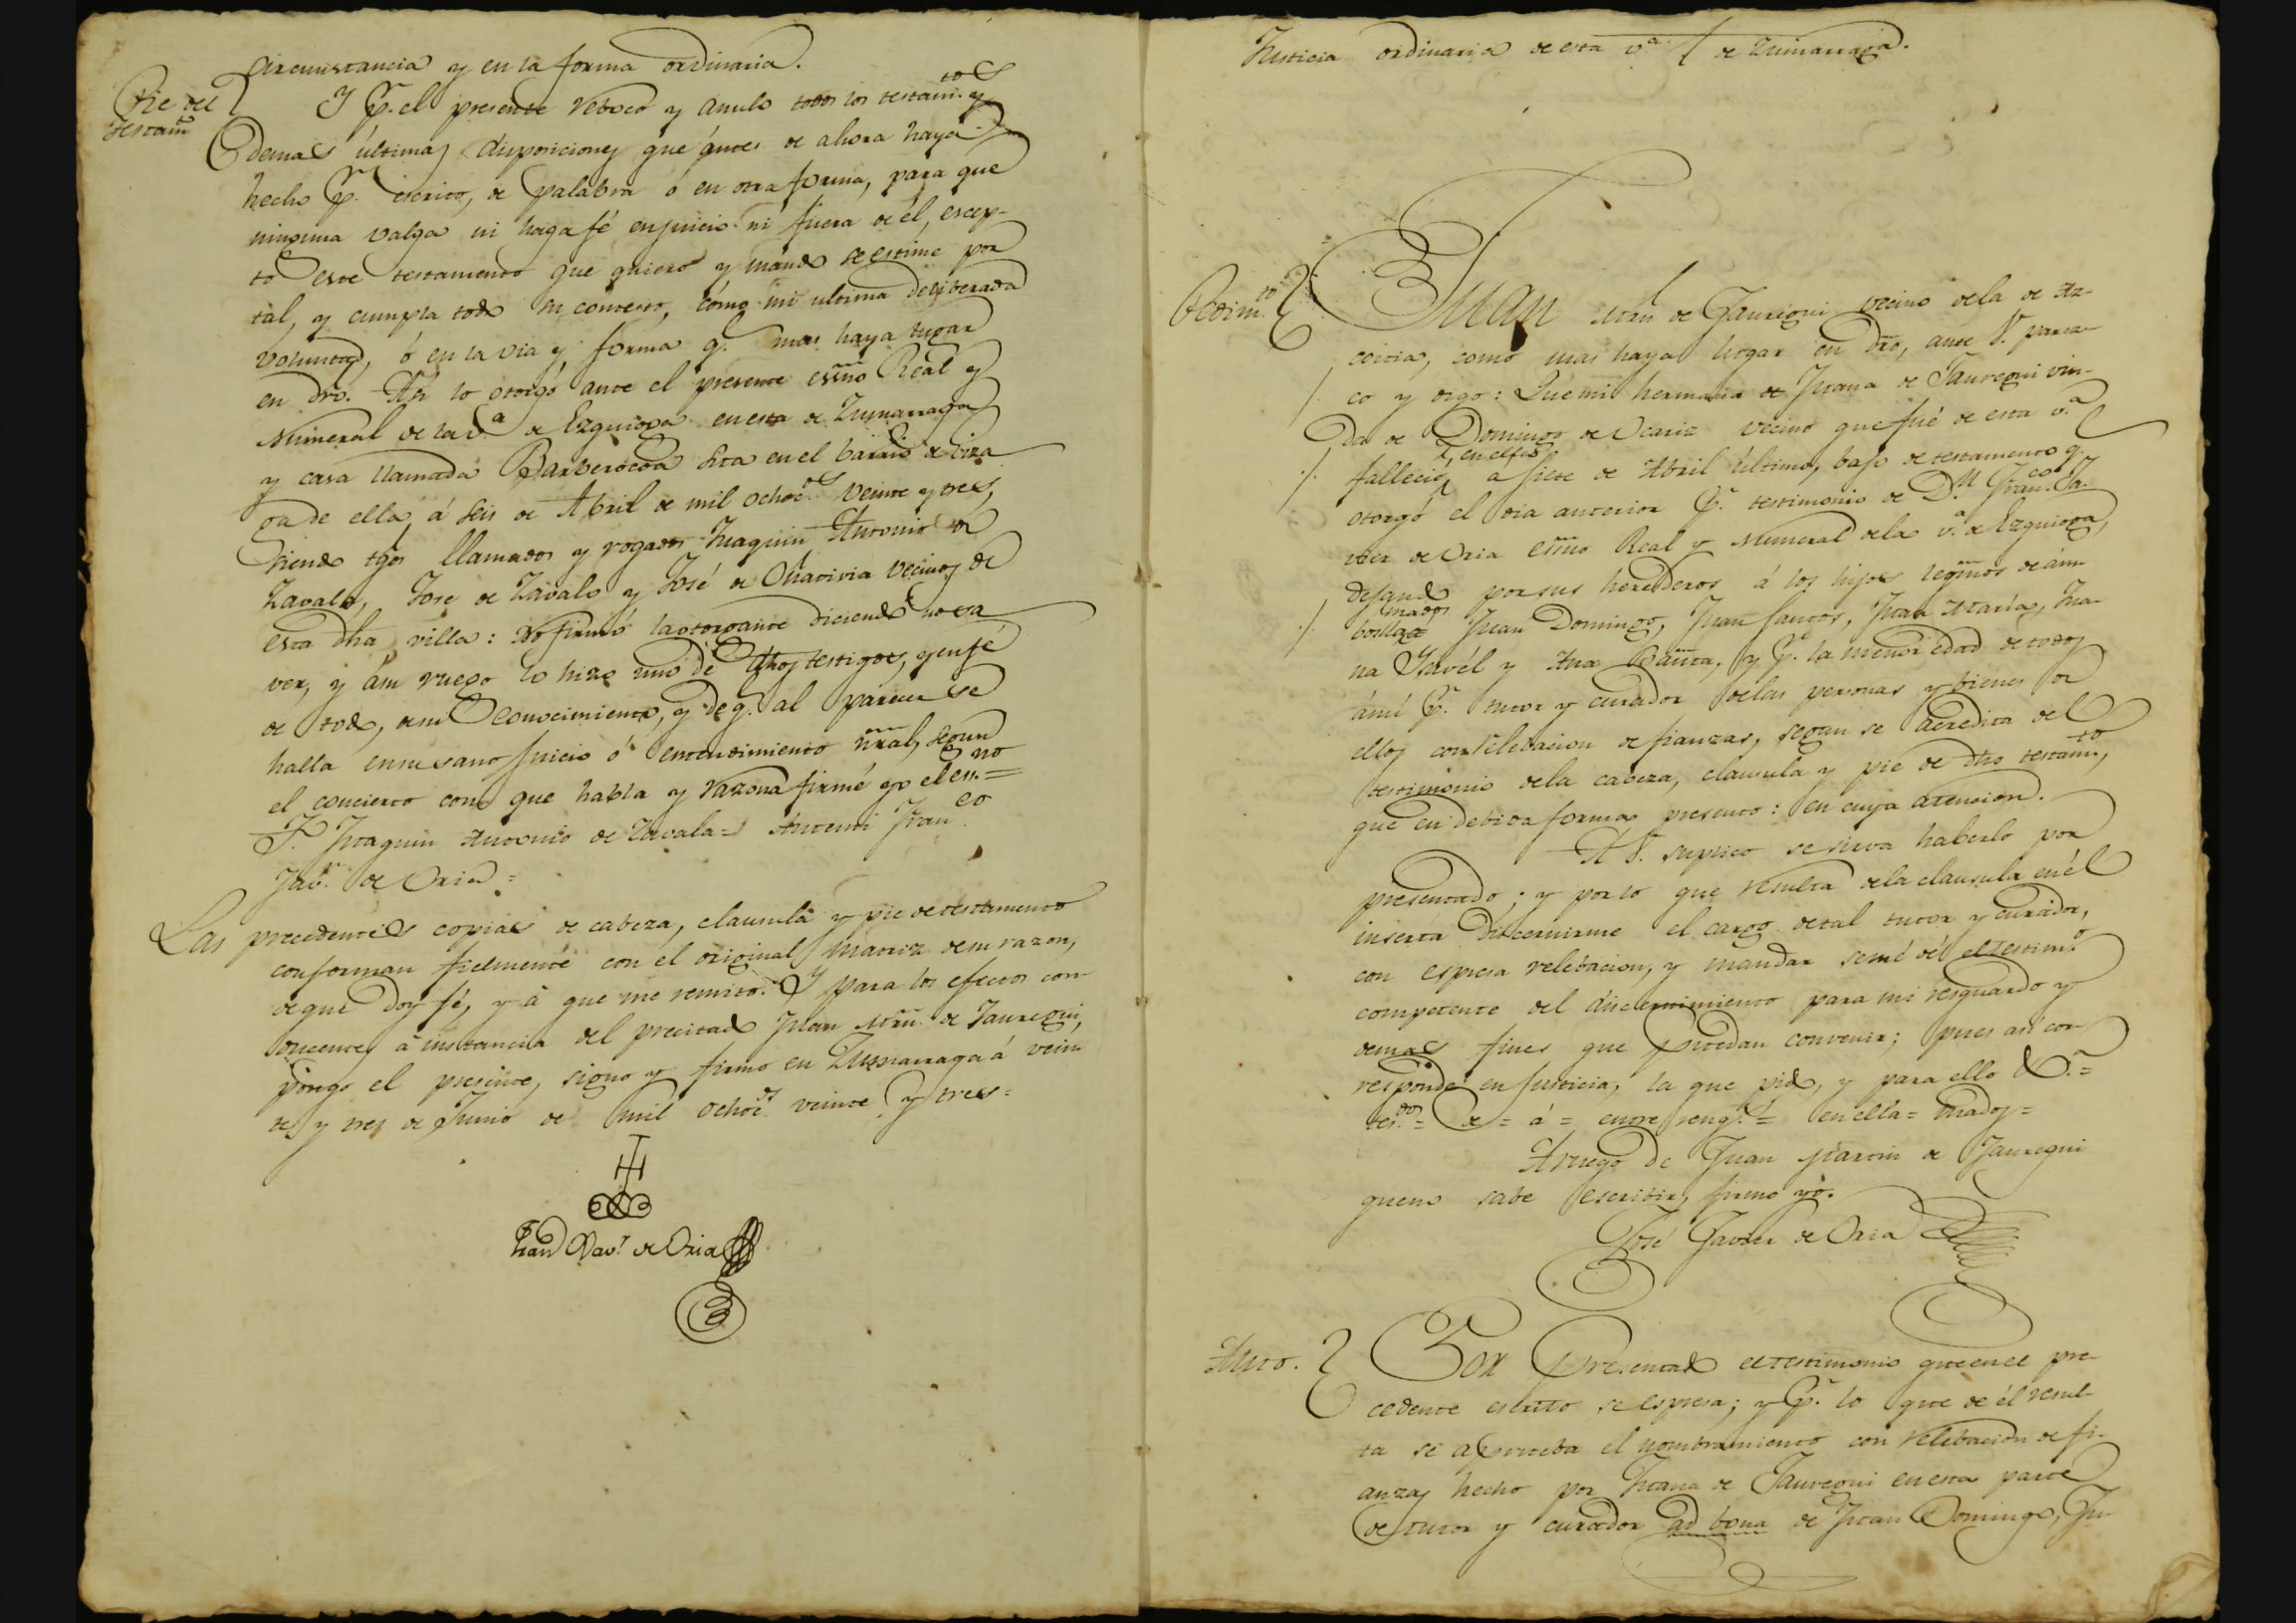 circunstancia y en la forma ordinaria.
Pie del
testamto
Y pr. el presente reboco y anulo todos los testam.tos y
demas últimas disposiciones que ántes de ahora haya
hecho pr. escrito, de palabra ó en otra forma, para que
ninguna valga ni haga fé en juicio ni fuera de él, escep-
to este testamento que quiero y mando se estime por
tal, y cumpla todo su contesto, cómo mi ultima deliberada
voluntad, ó en la via y forma q.e mas haya lugar
en dro. Asi lo otorgó ante el presente essno Real y
Numeral de la v.a de Ezquioga en esta de Zumarraga
y casa llamada Barberocoa sita en el barrio de
ga de ella, á seis de Abril de mil ochoc.s veinte y tres,
siendo tgos llamados y rogados Juaquin Antonio de
Zavala, Jose de Zavala y José de Oñativia vecinos de
esta dha villa: No firmó la otorgante diciendo no sa-
ver, y á su ruego lo hizo uno de dhos testigos, y en fé
de todo, de su conocimiento, y de q.e al parecer se
halla en su sano juicio ó entendimiento nral, segun
el concierto con que habla y razona firmé yo el es.no =
T. Juaquin Antonio de Zavala = Antemi Fran.co
Jav.r de Oria =
Las precedentes copias de cabeza, clausula y pie de testamento
conforman fielmente con él original matriz de su razon,
de que doy fé, y á que me remito. Y para los efectos con-
ducentes á instancia del precitado Juan Mrñ. de Jauregui,
pongo el presente, signo y firmo en Zumarraga á vein-
te y tres de Junio de mil ochoc.s veinte y tres =
Fran.co Xav.r de Oria
Justicia ordinaria de esta v.a de Zumarraga.
Pedim.to
Juan Mrñ de Jauregui vecino de la de Az-
coitia, como mas haya lugar en dro, ante V. parez-
co y digo: Que mi hermana Juana de Jauregui viu-
da de Domingo de Ucariz vecino que fué de esta v.a
falleció en ella a siete de Abril último, bajo de testamento q.e
otorgó el dia anterior pr. testimonio de D.n Fran.co Ja-
vier de Oria essno Real y Numeral de la v.a de Ezquioga,
dejando por sus herederos á los hijos legmos de ám-
bos llamados Juan Domingo, Juan Santos, Juan Maria, Jua-
na Ysavél y Ana Bauta, y pr. la menor edad de todos
ámí pr. tutor y curador de las personas y bienes de
ellos con relebacion de fianzas, segun se acredita del
testimonio de la cabeza, clausula y pie de dho testam.to,
que en debida forma presento: en cuya atencion.
A V. suplico se sirva haberlo por
presentado; y por lo que resulta de la clausula en él
inserta discernirme el cargo de tal tutor y curador,
con espresa relebacion, y mandar se mé dé el testim.o
competente del discernimiento para mi resguardo y
demas fines que puedan convenir; pues asi cor-
responde en Justicia, la que pido, y para ello &.a =
tes.dos = de = á = entre reng.s = en ella = mados =
A ruego de Juan Martin de Jauregui
que no sabe escribir, firmo yó.
José Javier de Oria
Auto.
Por presentado el testimonio que en el pre-
cedente escrito se espresa; y pr. lo que de él resul-
ta se aprueba el nombramiento con relebación de fi-
anzas hecho por Juana de Jauregui en esta parte
de tutor y curador ad bona de Juan Domingo, Ju-